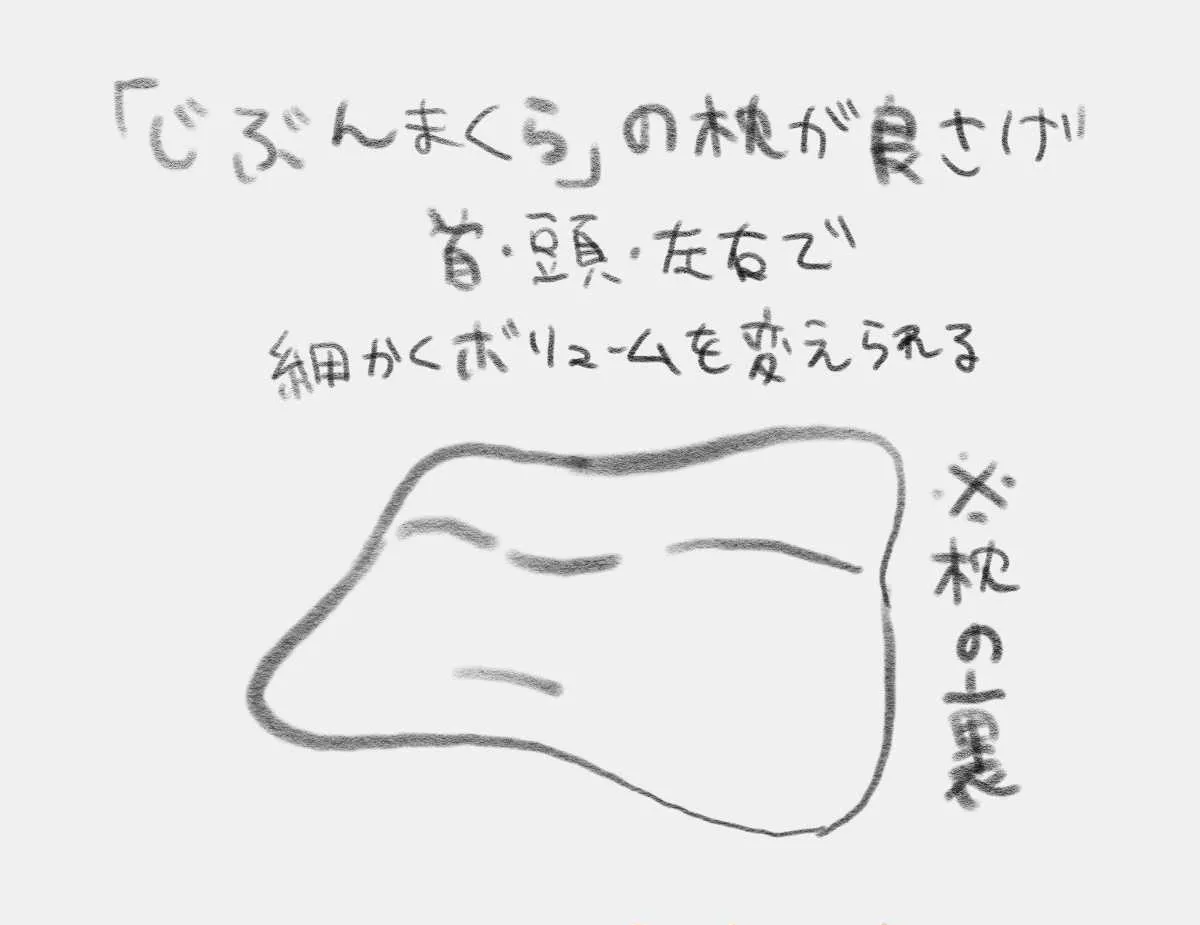 「じぶんまくら」の枕が良さげ
首・頭・左右で
細かくボリュームを変えられる
※枕の裏